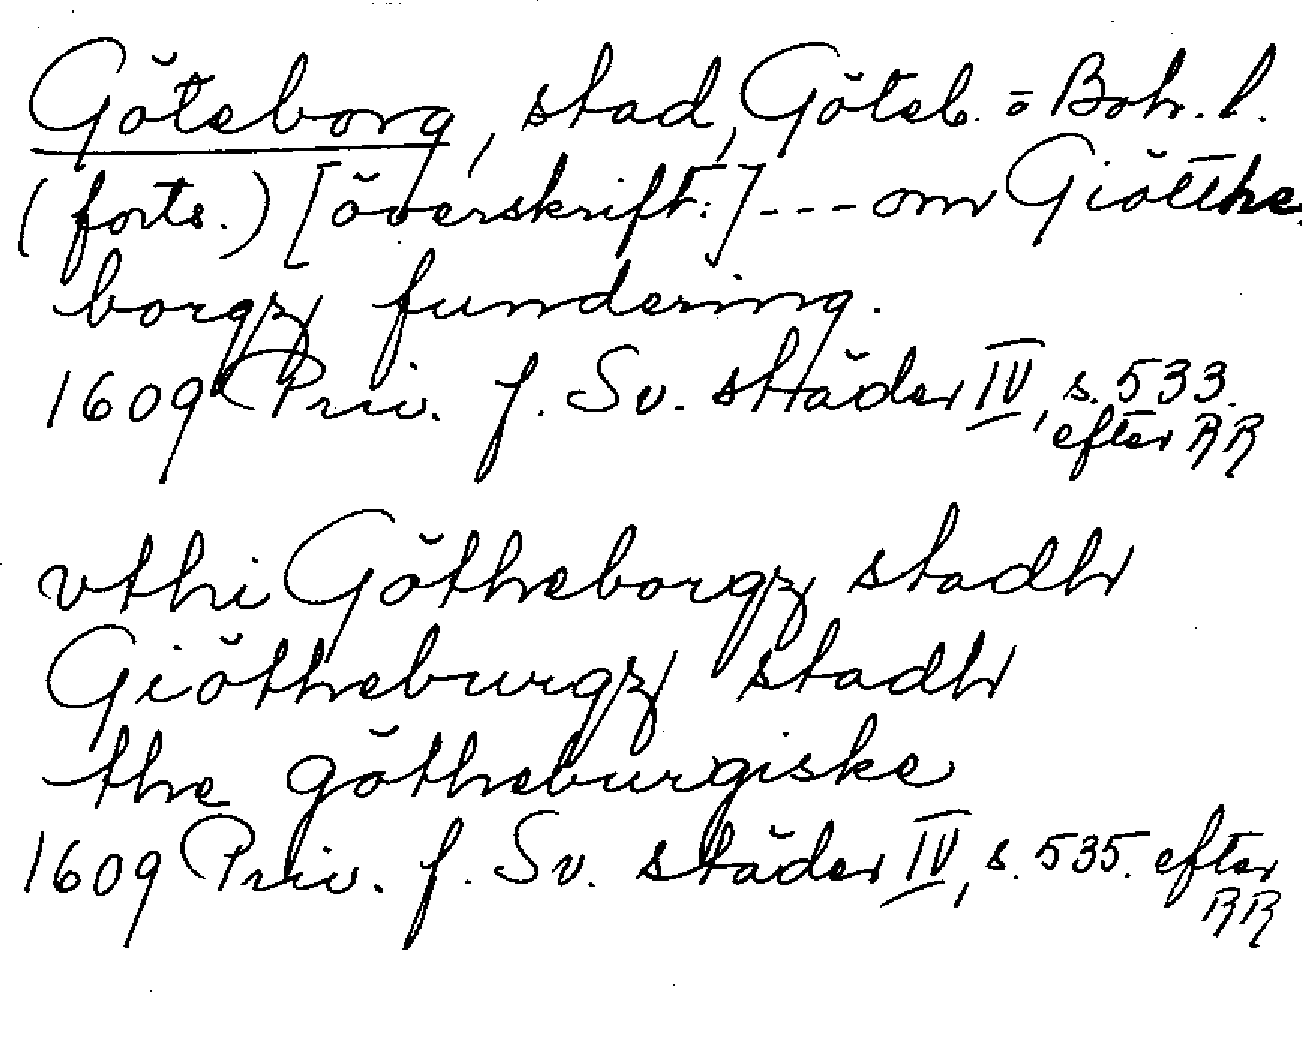 Göteborg, stad, Göteb. = Boh. l.
(forts.) [överskrift:] --- om Giötthe
borgz fundering.
1609 Priv. f. Sv. städer IV, s. 533.
efter RR
vthi Götheborgz stadh
Giötheburgz stadh
the götheburgiske
1609 Priv. f. Sv. städer IV, s. 535. efter
RR